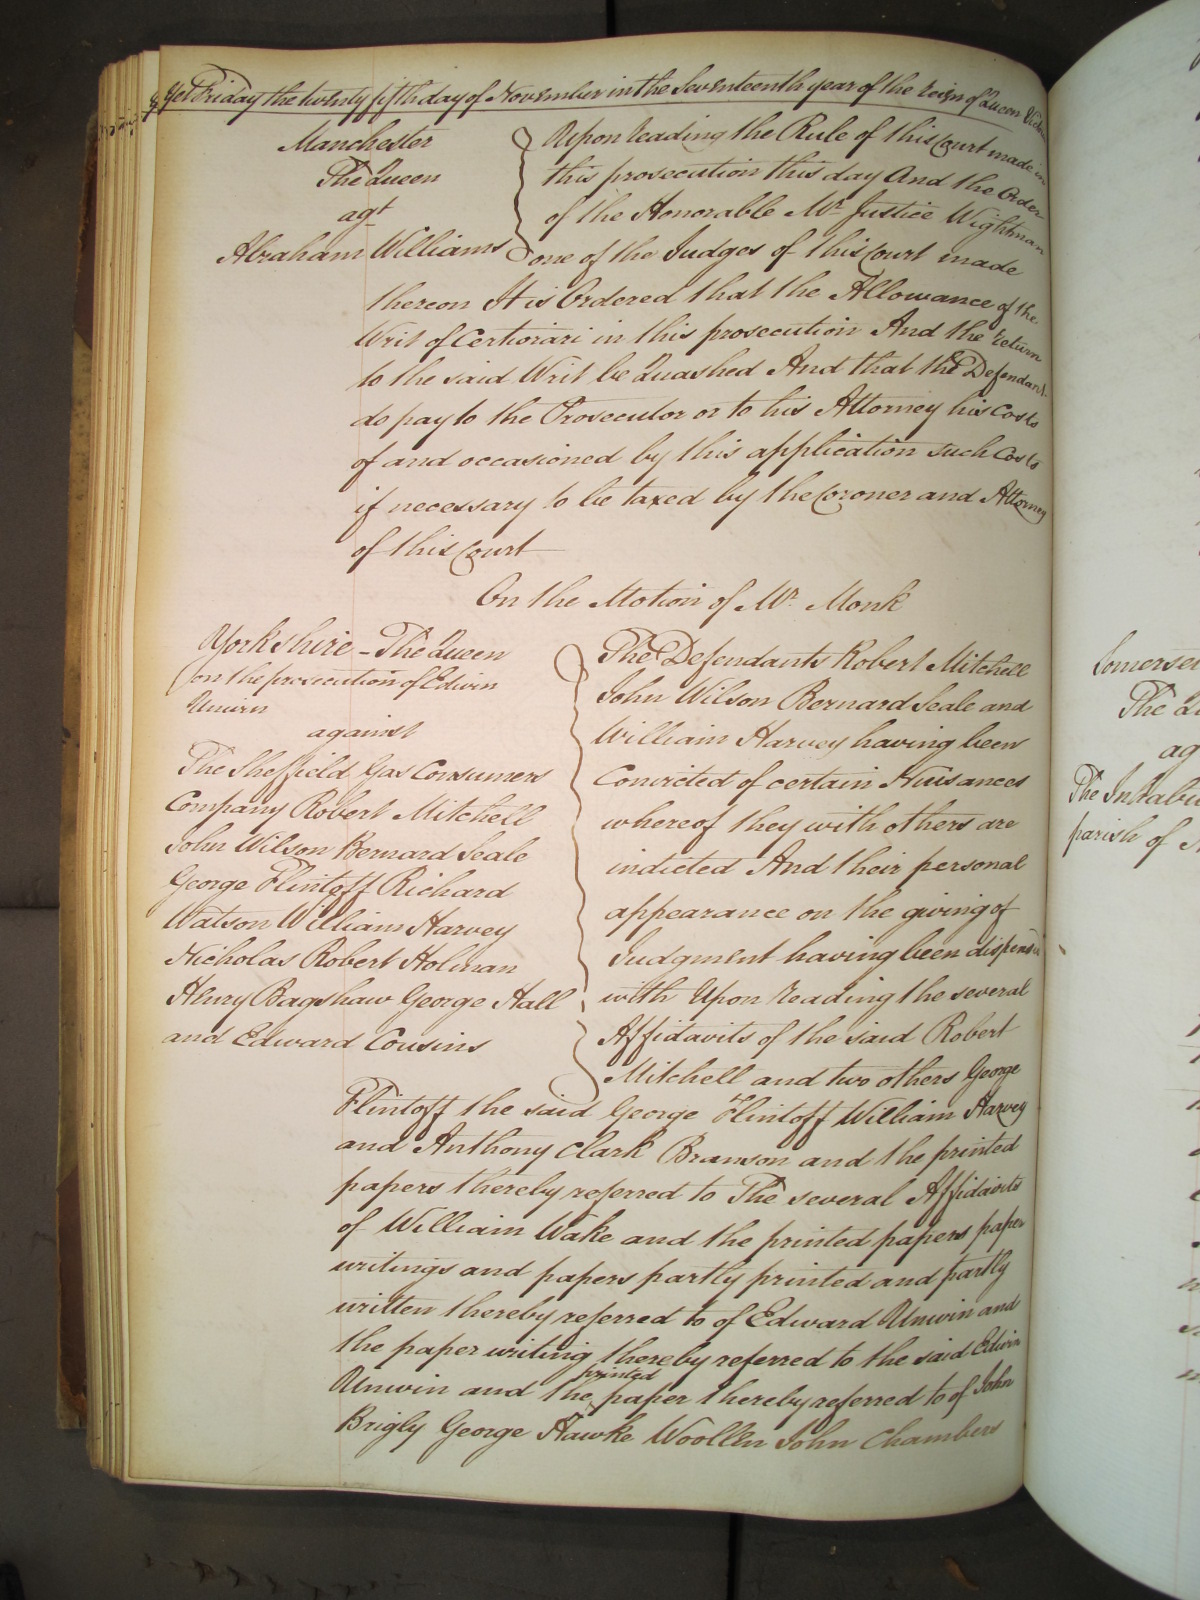 Yet Friday the twenty fifth day of November in the Seventeenth year of the Reign of Queen
Manchester
The Queen
agt
Abraham Williams
Upon reading the Rule of this Court made in
this prosecution this day And the Order
of the Honorable Mr. Justice Wightman
one of the Judges of this Court made
thereon It is Ordered that the Allowance of the
Writ of Certiorari in this prosecution And the return
to the said Writ be Quashed And that the Defendant
do pay to the Prosecutor or to his Attorney his Costs
of and occasioned by this application such Costs
if necessary to be taxed by the Coroner and Attorney
of this Court
On the Motion of Mr. Monk
Yorkshire - The Queen
on the prosecution of Edwin
Unwin
against
The Sheffield Gas Consumers
Company Robert Mitchell
John Wilson Bernard Seale
George Flintoff Richard
Watson William Harvey
Nicholas Robert Holman
Henry Bagshaw George Hall
and Edward Cousins
The Defendants Robert Mitchell
John Wilson Bernard Seale and
William Harvey having been
Convicted of certain Nuisances
whereof they with others are
indicted And their personal
appearance on the giving of
Judgment having been dispensed
with Upon reading the several
Affidavits of the said Robert
Mitchell and two others George
Flintoff the said George Flintoff William Harvey
and Anthony Clark Branson and the printed
papers thereby referred to The several Affidavits
of William Wake and the printed papers paper
writings and papers partly printed and partly
written thereby referred to of Edward Unwin and
the paper writing thereby referred to the said Edwin
Unwin and the printed paper thereby referred to of John
Brigly George Hawke Woollen John Chambers
Somerset
The
ag
The
parish of